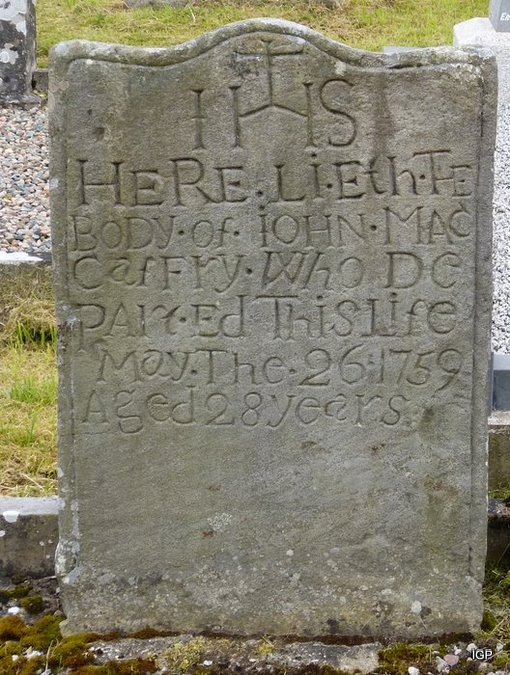 IHS
HeRe·Li·Eth·THE
BODY·of·IOHN·MAC
CafFry·Who De
PArt·Ed This Life
May·The·26·1759
Aged 28 years
IGP